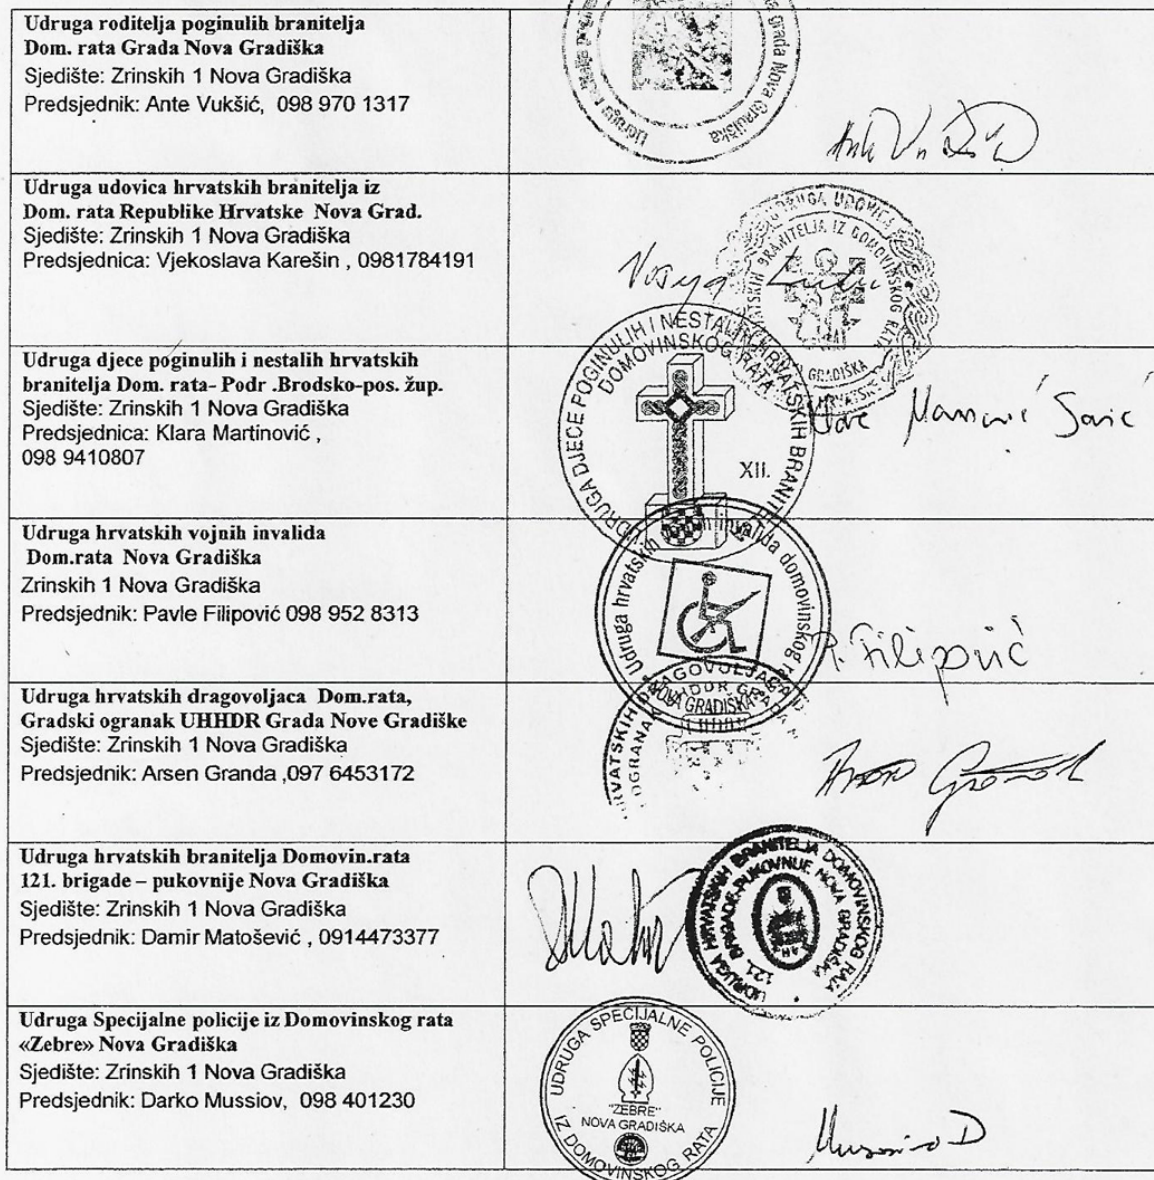 Udruga roditelja poginulih branitelja
Dom. rata Grada Nova Gradiška
Sjedište: Zrinskih 1 Nova Gradiška
Predsjednik: Ante Vukšić, 098 970 1317
grada Nova Gradiška
Udruga
Udruga udovica hrvatskih branitelja iz
Dom. rata Republike Hrvatske Nova Grad.
Sjedište: Zrinskih 1 Nova Gradiška
Predsjednica: Vjekoslava Karešin , 0981784191
UDRUGA UDOVICA
BRANITELJA IZ DOMOVINSKOG RATA
GRADIŠKA
Udruga djece poginulih i nestalih hrvatskih
branitelja Dom. rata- Podr .Brodsko-pos. žup.
Sjedište: Zrinskih 1 Nova Gradiška
Predsjednica: Klara Martinović ,
098 9410807
UDRUGA DJECE POGINULIH I NESTALIH HRVATSKIH BRANITELJA
DOMOVINSKOG RATA
XII.
Udruga hrvatskih vojnih invalida
Dom.rata Nova Gradiška
Zrinskih 1 Nova Gradiška
Predsjednik: Pavle Filipović 098 952 8313
Udruga hrvatskih vojnih invalida domovinskog rata
NOVA GRADIŠKA
P. Filipović
Udruga hrvatskih dragovoljaca Dom.rata,
Gradski ogranak UHHDR Grada Nove Gradiške
Sjedište: Zrinskih 1 Nova Gradiška
Predsjednik: Arsen Granda ,097 6453172
HRVATSKIH DRAGOVOLJACA
OGRANAK
Udruga hrvatskih branitelja Domovin.rata
121. brigade – pukovnije Nova Gradiška
Sjedište: Zrinskih 1 Nova Gradiška
Predsjednik: Damir Matošević , 0914473377
UDRUGA HRVATSKIH BRANITELJA DOMOVINSKOG RATA
121. BRIGADE-PUKOVNIJE NOVA GRADIŠKA
Udruga Specijalne policije iz Domovinskog rata
«Zebre» Nova Gradiška
Sjedište: Zrinskih 1 Nova Gradiška
Predsjednik: Darko Mussiov, 098 401230
UDRUGA SPECIJALNE POLICIJE
"ZEBRE"
NOVA GRADIŠKA
IZ DOMOVINSKOG RATA